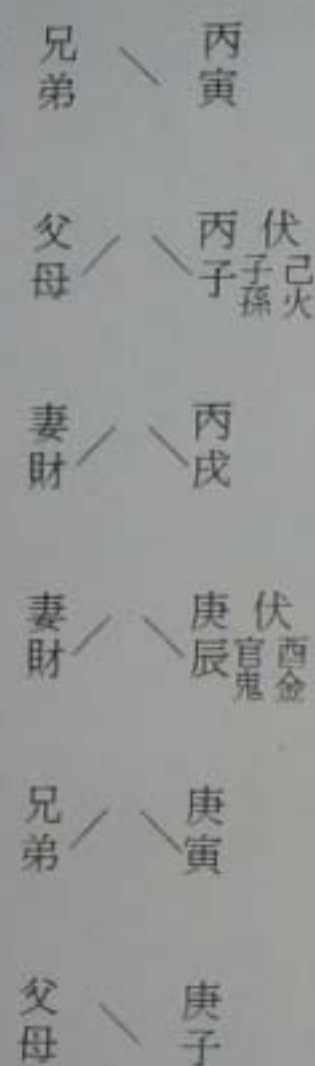 兄弟 丙寅
父母 丙子 伏 子孫 己火
妻財 丙戌
妻財 庚辰 伏 官鬼 酉金
兄弟 庚寅
父母 庚子